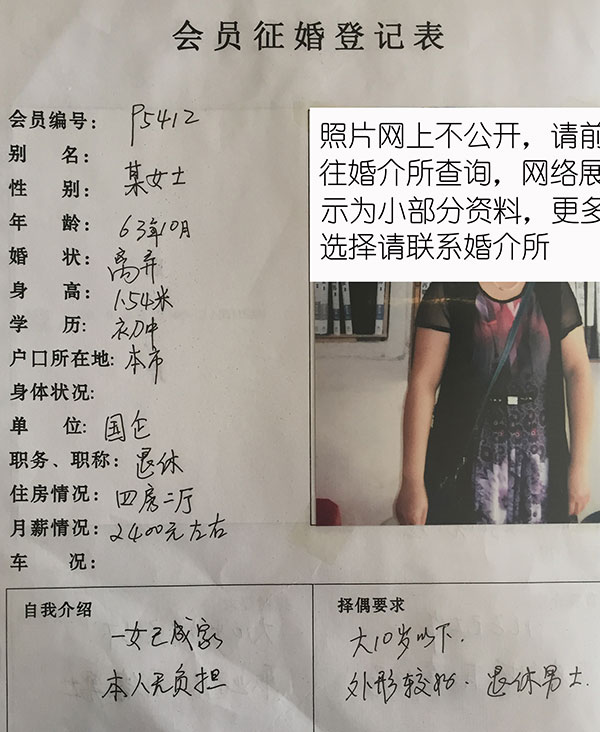 会员征婚登记表
会员编号: P5412
别 名:
性 别: 某女士
年 龄: 63年10月
婚 状: 离弃
身 高: 1.54米
学 历: 初中
户口所在地: 本市
身体状况:
单 位: 国企
职务、职称: 退休
住房情况: 四房二厅
月薪情况: 2400元左右
车 况:
照片网上不公开，请前
往婚介所查询，网络展
示为小部分资料，更多
选择请联系婚介所
自我介绍
一女已成家
本人无负担
择偶要求
大10岁以下.
外形较好. 退休男士.